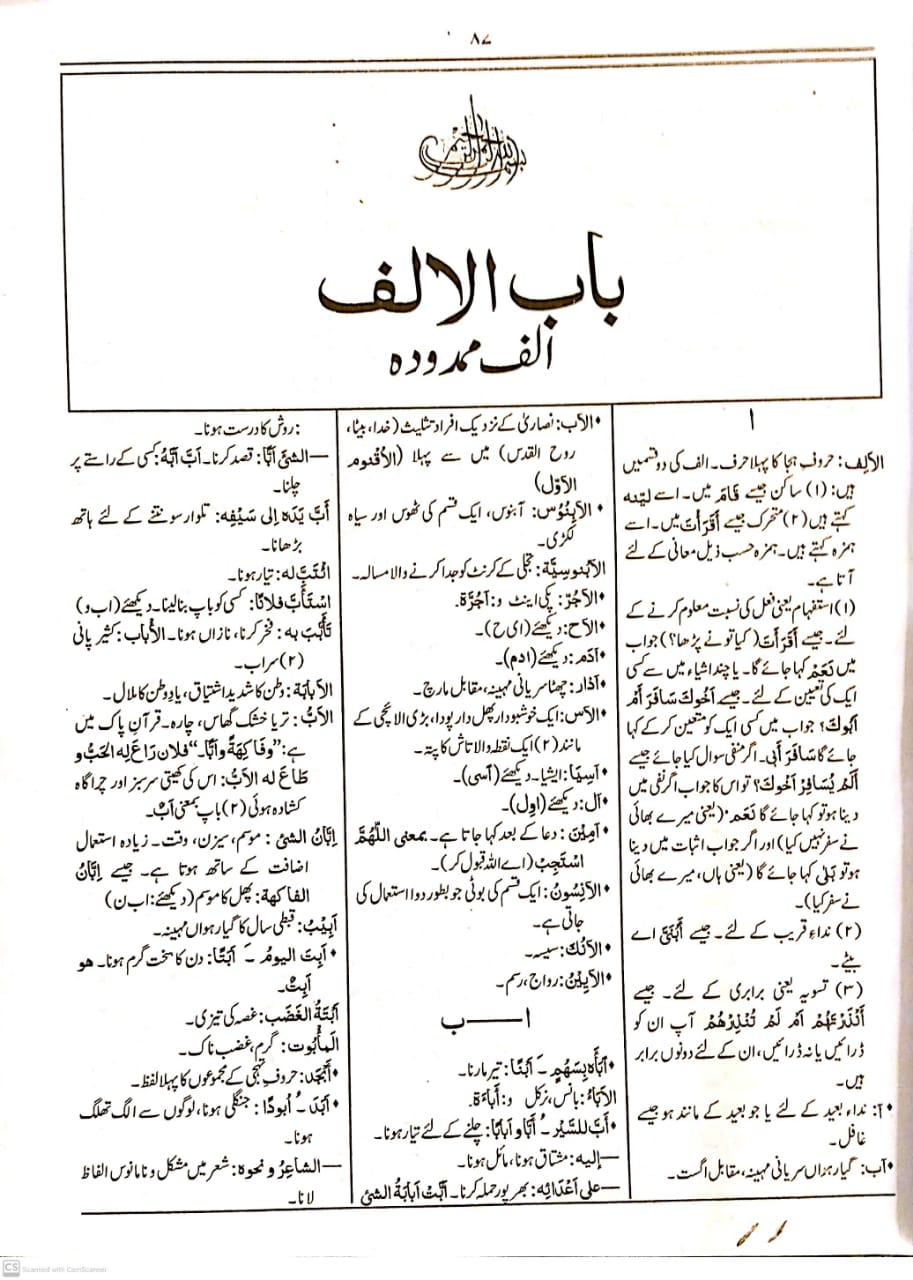 ۸۷
بسم اللہ الرحمن الرحیم
باب الالف
الف ممدودہ
ا
الاَلِف: حروف ہجا کا پہلا حرف۔ الف کی دو قسمیں
ہیں: (۱) ساکن جیسے قَامَ میں۔ اسے لینہ
کہتے ہیں (۲) متحرک جیسے أَقَرَأْتَ میں۔ اسے
ہمزہ کہتے ہیں۔ ہمزہ حسب ذیل معانی کے لئے
آتا ہے۔
(۱) استفہام یعنی فعل کی نسبت معلوم کرنے کے
لئے۔ جیسے أَقَرَأْتَ (کیا تونے پڑھا؟) جواب
میں نَعَمْ کہا جائے گا۔ یا چند اشیاء میں سے کسی
ایک کی تعیین کے لئے۔ جیسے أَخُوكَ سَافَرَ أَمْ
أَبُوكَ؟ جواب میں کسی ایک کو متعین کرکے کہا
جائے گا سَافَرَ أَبِی۔ اگر منفی سوال کیا جائے جیسے
أَلَمْ يُسَافِرْ أَخُوكَ؟ تو اس کا جواب اگر نفی میں
دینا ہو تو کہا جائے گا نَعَم (یعنی میرے بھائی
نے سفر نہیں کیا) اور اگر جواب اثبات میں دینا
ہو تو بَلٰی کہا جائے گا (یعنی ہاں، میرے بھائی
نے سفر کیا)۔
(۲) نداءِ قریب کے لئے۔ جیسے أَبُنَيَّ اے
بیٹے۔
(۳) تسویہ یعنی برابری کے لئے۔ جیسے
أَنْذَرْتَهُمْ أَمْ لَمْ تُنْذِرْهُمْ آپ ان کو
ڈرائیں یا نہ ڈرائیں، ان کے لئے دونوں برابر
ہیں۔
•آ: نداء بعید کے لئے یا جو بعید کے مانند ہو جیسے
غافل۔
•آب: گیارہواں سریانی مہینہ، مقابل اگست۔
•الآب: نصاریٰ کے نزدیک افراد تثلیث (خدا، بیٹا،
روح القدس) میں سے پہلا (الأُقنُوم
الأوّل)
•الآبنُوْس: آبنوس، ایک قسم کی ٹھوس اور سیاہ
لکڑی۔
الآبنوسِيَّة: بجلی کے کرنٹ کو جدا کرنے والا مسالہ۔
•الآجُرّ: پکی اینٹ و: آجُرَّة۔
•الآح: دیکھئے (ای ح)۔
•آدم: دیکھئے (ادم)۔
•آذار: چھٹا سریانی مہینہ، مقابل مارچ۔
•الآس: ایک خوشبودار پھل دار پودا، بڑی الائچی کے
مانند (۲) ایک نقطہ والا تاش کا پتہ۔
•آسِیَا: ایشیا۔ دیکھئے (آسی)۔
•آل: دیکھئے (اول)۔
•آمِیْنَ: دعا کے بعد کہا جاتا ہے۔ بمعنی اَللّٰهُمَّ
اسْتَجِبْ (اے اللہ قبول کر)۔
•الآنِسُون: ایک قسم کی بوٹی جو بطور دوا استعمال کی
جاتی ہے۔
•الآنُك: سیسہ۔
•الآیِیْنُ: رواج، رسم۔
ا——ب
•أَبَأَهُ بِسَهْمٍ ـَ أَبْئًا: تیر مارنا۔
الأَبَاءُ: بانس، نرکل و: أَبَاءَة۔
•أَبَّ لِلسَّيْرِ ـُ أَبًّا و أَبَابًا: چلنے کے لئے تیار ہونا۔
—إليه: مشتاق ہونا، مائل ہونا۔
—على أَعْدَائِه: بھرپور حملہ کرنا۔ أَبَّتْ أَبَابَةُ الشئ
:روش کا درست ہونا۔
—الشئ أَبًّا: قصد کرنا۔ أَبَّ أَبَّهُ: کسی کے راستے پر
چلنا۔
أَبَّ يَدَه إلى سَيْفِه: تلوار سونتنے کے لئے ہاتھ
بڑھانا۔
ائْتَبَّ له: تیار ہونا۔
اسْتَأَبَّ فلانًا: کسی کو باپ بنا لینا۔ دیکھئے (اب و)
تَأَبَّبَ به: فخر کرنا، نازاں ہونا۔ الأُباب: کثیر پانی
(۲) سراب۔
الأَبَابَة: وطن کا شدید اشتیاق، یادِ وطن کا ملال۔
الأَبُّ: تر یا خشک گھاس، چارہ۔ قرآنِ پاک میں
ہے: "وفَاكِهَةً وأَبًّا" فلان رَاعَ له الحَبُّ و
طَاعَ له الأَبُّ: اس کی کھیتی سرسبز اور چراگاہ
کشادہ ہوئی (۲) باپ بمعنی أَبْ۔
إبّانُ الشئ: موسم، سیزن، وقت۔ زیادہ استعمال
اضافت کے ساتھ ہوتا ہے۔ جیسے إِبَّانُ
الفاكهة: پھل کا موسم (دیکھئے: اب ن)
أَبِیْبُ: قبطی سال کا گیارہواں مہینہ۔
•أَبِتَ اليومُ ـَ أَبَتًا: دن کا سخت گرم ہونا۔ هو
أَبِتٌ۔
أَبْتَةُ الغَضَب: غصہ کی تیزی۔
المأْبُوت: گرم، غضب ناک۔
•أَبْجَد: حروفِ تہجی کے مجموعوں کا پہلا لفظ۔
•أَبَدَ ـُ أُبودًا: جنگلی ہونا، لوگوں سے الگ تھلگ
ہونا۔
—الشاعرُ و نحوه: شعر میں مشکل و نا مانوس الفاظ
لانا۔
CS Scanned with CamScanner